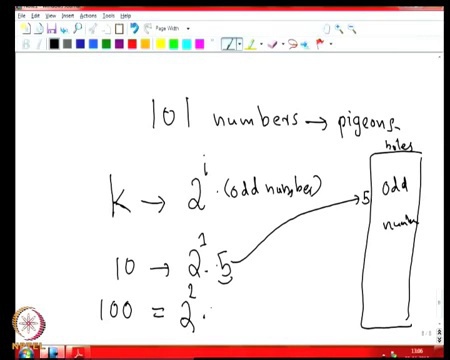 File Edit View Insert Actions Tools Help
Page Width
B
101 numbers → pigeons
holes
K → 2^i · (odd number)
5 odd
number
10 → 2^1 · 5
100 = 2^2 ·
13:06